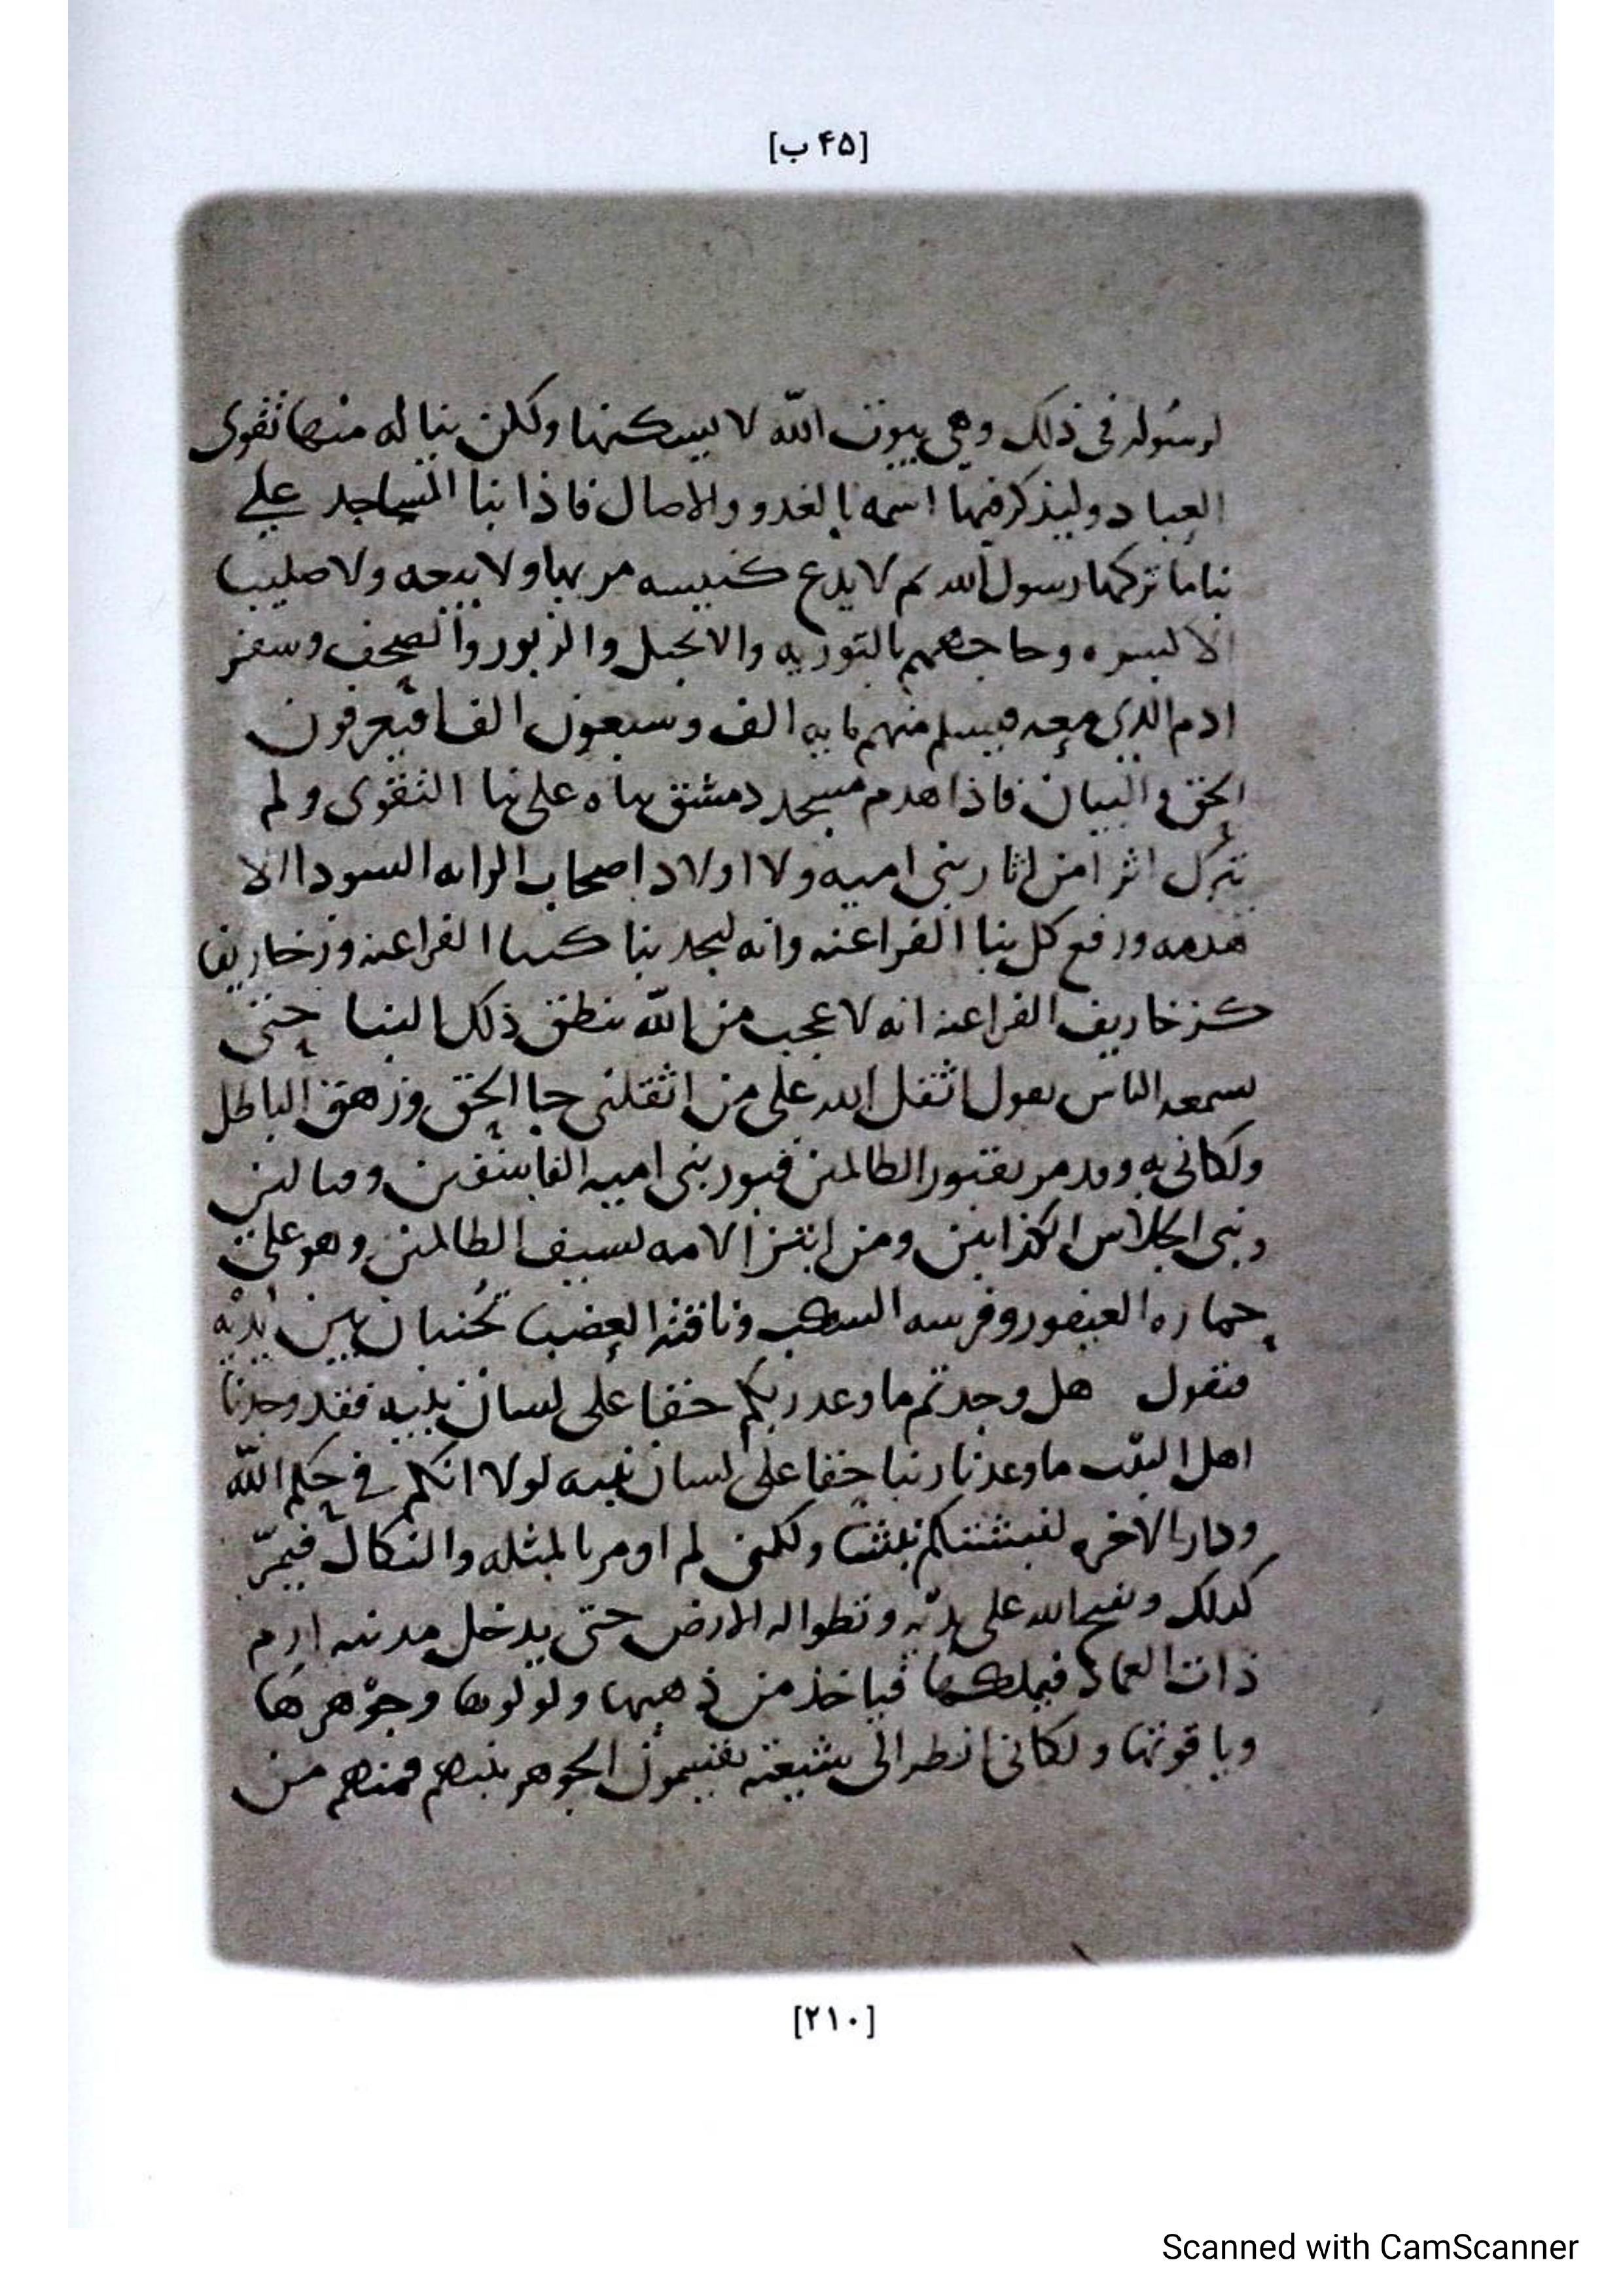 [۴۵ ب]
لرسوله فى ذلك وهي بيوت الله لا يسكنها ولكن بنا له منها تقوى
العباد وليذكر فيها اسمه بالغدو والاصال فاذا بنا المساجد على
بنا ما تركها رسول الله ثم لا يدع كنيسه مر بها ولا بيعه ولا صليب
الا كسره وحاججهم بالتوريه والانجيل والزبور والصحف وسفر
ادم الذي معه فيسلم منهم مايه الف وسبعون الفا فيعرفون
الحق والبيان فاذا هدم مسجد دمشق بناه على بنا التقوى ولم
يترك اثرا من اثار بنى اميه ولا اولاد اصحاب الرايه السودا الا
هدمه ورفع كل بنا الفراعنه وانه ليجد بنا كبنا الفراعنه وزخاريف
كزخاريف الفراعنه انه لا عجب من الله ينطق ذلك البنا حتى
يسمعه الناس يقول اثقل الله على من اثقلنى جا الحق وزهق الباطل
ولكانى به وقد مر بقبور الظالمين قبور بنى اميه الفاسقين
وبنى الكذابين ومن ابتز الامه بسيف الظالمين وهو على
حماره اليعفور وفرسه السكب وناقته العضبا تجنبان بين يديه
فيقول هل وجدتم ما وعد ربكم حقا على لسان نبيه فقد وجدنا
اهل البيت ما وعدنا ربنا حقا على لسان نبيه لولا انكم في حكم الله
ودار الاخره لنبشتكم نبشا ولكنى لم اومر بالمثله والنكال فيمر
كذلك ويفتح الله على يديه وتطوا له الارض حتى يدخل مدينه ارم
ذات العماد فيملكها فياخذ من ذهبها ولولوها وجوهرها
وياقوتها ولكانى انظر الى شيعته يقتسمون الجوهر بينهم فمنهم من
[۲۱۰]
Scanned with CamScanner